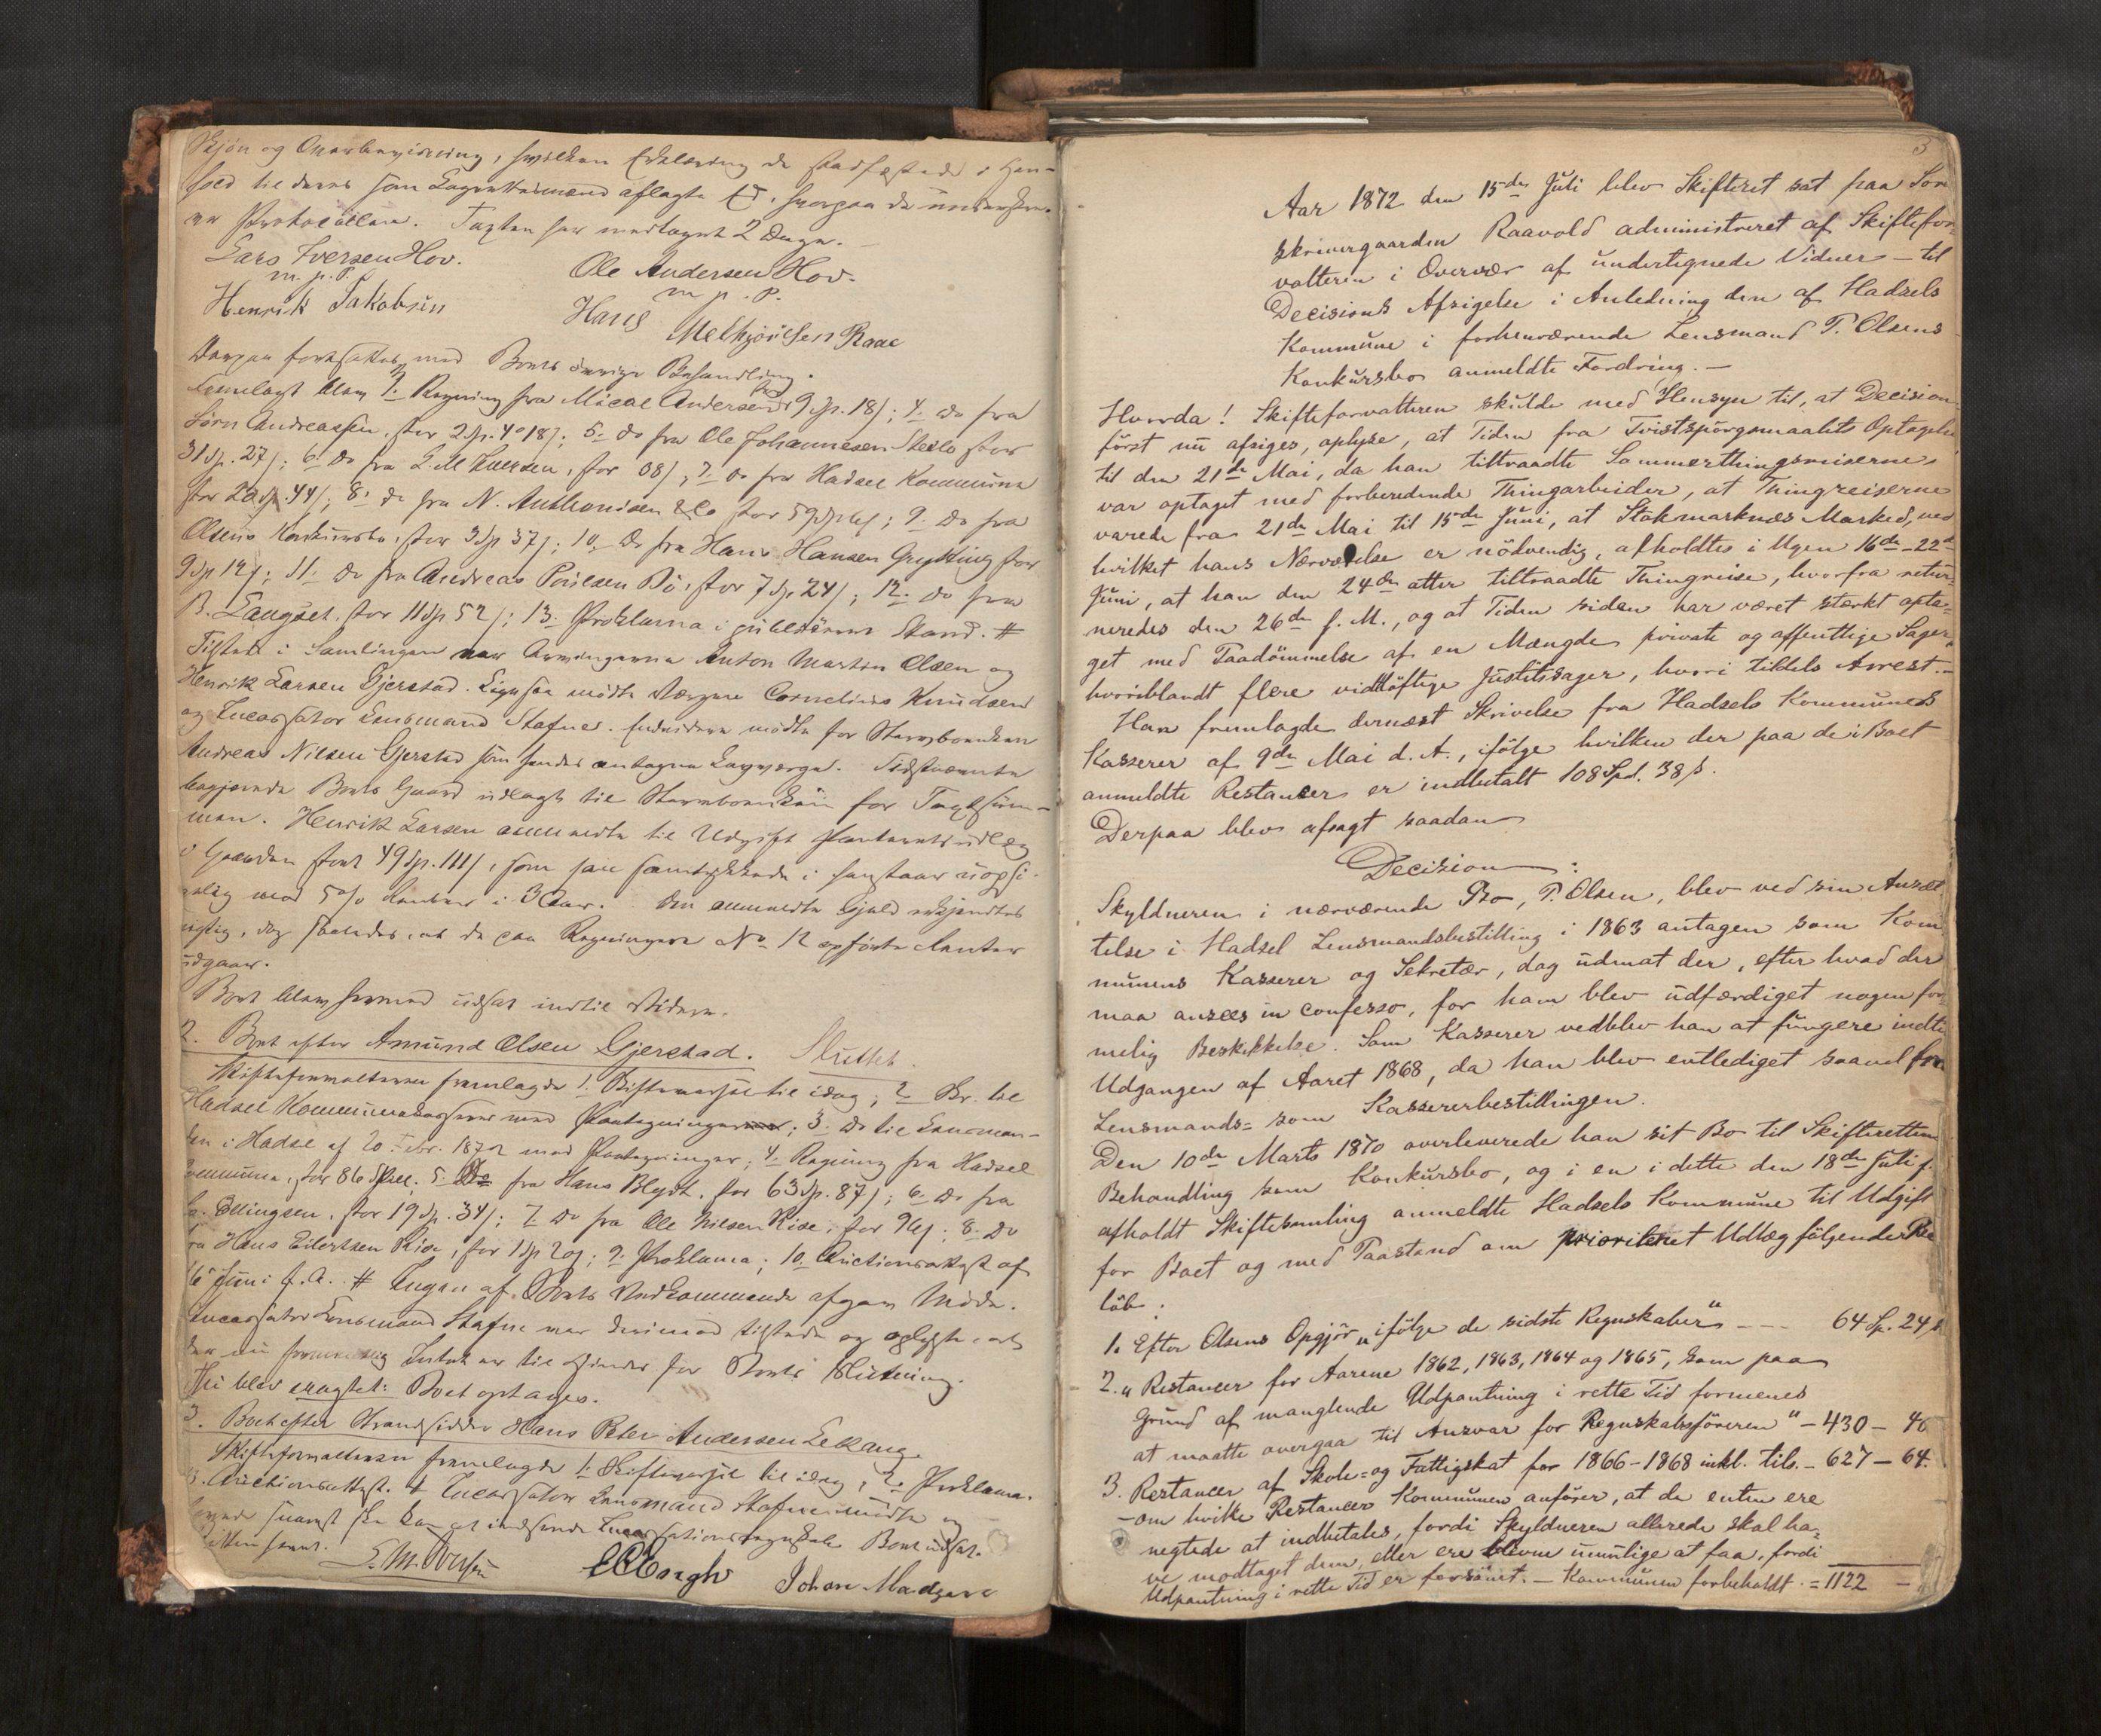 Skjøn og Overbeviisning, hvilken Erklæring de stadfæstede i Hen-
hold til deres som Lagrettesmænd aflagte Ed, hvorpaa de underskre-
ve Protocollen. Taxten har medtaget 2 Dage.
Lars Iversen Hov.
m. p. P.
Ole Andersen Hov.
m p. P.
Henrik Jakobsen
Hans Melkjörlsen Raae
Derpaa fortsattes med Boets øvrige Behandling.
Fremlagt blev 3. Regning fra Mikal Andersen stor 9 Sp. 18 ß; 4. do fra
Sörn Andreassen, stor 2 Sp. 4 0 18 ß; 5. do fra Ole Johannesen Steilo stor
31 Sp. 27 ß; 6. do fra L. M. Iversen, stor 08 ß; 7. do fra Hadsel Kommune
stor 20 Sp. 44 ß; 8. do fra N. Anthonisen & Co stor 59 Sp ; 9. do fra
Olsens Konkursbo, stor 3 Sp 37 ß; 10. do fra Hans Hansen Grytting stor
9 Sp 12 ß; 11. do fra Andreas Povelsen Bö, stor 7 Sp. 24 ß; 12. do fra
B. Langset, stor 11 Sp 52 ß; 13. Proklama i publiceret Stand. #
Tilstede i Samlingen var Arvingerne Anton Martin Olsen og
Henrik Larsen Gjerstad. Ligesaa mødte Værgen Cornelius Knudsen
og Incassator Lensmand Stafne. Endvidere mødte for Stervboenken
Andreas Nilsen Gjerstad som hendes antagne Lavværge. Sidstnævnte
begjærede Boets Gaard udlagt til Stervboenken for Taxtsum-
men. Henrik Larsen anmeldte til Udgift Panteretsudlæg
i Gaarden stort 49 Sp. 111 ß, som han samtykkede i henstaar uopsi-
gelig mod 5 % Renter i 3 Aar. Den anmeldte Gjæld erkjendtes
rigtig, dog saaledes at de paa Regningen No 12 opførte Renter
udgaar.
Boet blev hermed udsat indtil videre.
2. Boet efter Amund Olsen Gjerstad. Sluttet.
Skifteforvalteren fremlagde 1. Skiftevarsel til idag; 2. Br. til
Hadsel Kommunekasserer med Paategninger; 3. do til Lensman-
den i Hadsel af 20 Febr. 1872 med Paategninger; 4. Regning fra Hadsel
Kommune, stor 86 Skill; 5. Do fra Hans Blydt, for 63 Sp. 87 ß; 6. do fra
Ellingsen, stor 19 Sp. 34 ß; 7. do fra Ole Nilsen Rise, for 96 ß; 8. do
fra Hans Eilertsen Rise, for 1 Sp 20 ß; 9. Proklama; 10. Auctionsudtog af
Juni f. A. # Ingen af Boets Vedkommende afgav Møde.
Incassator Lensmand Stafne var derimod tilstede og oplyste at
der nu formentlig Intet er til Hinder for Boets Slutning.
Thi blev eragtet: Boet optages.
3. Boet efter Strandsidder Hans Peter Andersen Lekang.
Skifteforvalteren fremlagde 1. Skiftevarsel til idag; 2. Proklama.
3. Auctionsudtog. # Incassator Lensmand Stafne mødte og
snarest ske kan at indsende Incassationsregnskab. Boet udsat.
Retten hævet.
L. M. Iversen
Johan Madsen
3
Aar 1872 den 15de Juli blev Skifteret sat paa Sor
skrivergaarden Raavold administreret af Skiftefor-
valteren i Overvær af undertegnede Vidner - til
Decisions Afsigelse i Anledning den af Hadsels
Kommune i forhenværende Lensmand P. Olsens
Konkursbo anmeldte Fordring. -
Hvorda! Skifteforvalteren skulde med Hensyn til, at Decision
först nu afsiges, oplyse, at Tiden fra Tvistspörgsmaalets Optagelse
til den 21de Mai, da han tiltraadte Sommerthingsreiserne,
var optaget med forberedende Thingarbeider, at Thingreiserne
varede fra 21de Mai til 15de Juni, at Stokmarknæs Marked, ved
hvilket hans Nærværelse er nödvendig, afholdtes i Ugen 16de-22de
Juni, at han den 24de atter tiltraadte Thingreise, hvorfra retur-
neredes den 26de f. M., og at Tiden siden har været stærkt opta-
get med Paadömmelse af en Mængde private og offentlige Sager,
hvoriblandt flere vidtlöftige Justitssager, hvori tildels Arrest. -
Han fremlagde dernæst Skrivelse fra Hadsels Kommunes
Kasserer af 9de Mai d. A., ifölge hvilken der paa de i Boet
anmeldte Restancer er indbetalt 108 Spd. 38 ß.
Derpaa blev afsagt saadan
Decision:
Skyldneren i nærværende Bo, P. Olsen, blev ved sin Ansæt-
telse i Hadsel Lensmandsbestilling i 1863 antagen som Kom-
munens Kasserer og Sekretær, dog udenat der, efter hvad der
maa ansees in confesso, for ham blev udfærdiget nogen for-
melig Beskikkelse. Som Kasserer vedblev han at fungere indtil
Udgangen af Aaret 1868, da han blev entlediget saavel fra
Lensmands- som Kassererbestillingen.
Den 10de Marts 1870 overleverede han sit Bo til Skifterettens
Behandling som Konkursbo, og i en i dette den 18de Juli f.
afholdt Skiftesamling anmeldte Hadsels Kommune til Udgift
for Boet og med Paastand om prioriteret Udlæg fölgende Be
löb:
1. Efter Olsens Opgjör „ifölge de sidste Regnskaber“ - - - 64 Sp. 24 ß
2. „Restancer for Aarene 1862, 1863, 1864 og 1865, som paa
Grund af manglende Udpantning i rette Tid formenes
at maatte overgaa til Ansvar for Regnskabsföreren“ - 430 - 46
3. Restancer af Skole- og Fattigskat for 1866-1868 inkl. tils. - 627 - 64.
- om hvilke Restancer Kommunen anförer, at de enten ere
negtede at indbetales, fordi Skyldneren allerede skal ha-
ve modtaget dem, eller ere blevne umulige at faa, fordi
Udpantning i rette Tid er forsömt. - Kommunen forbeholdt. = 1122 -